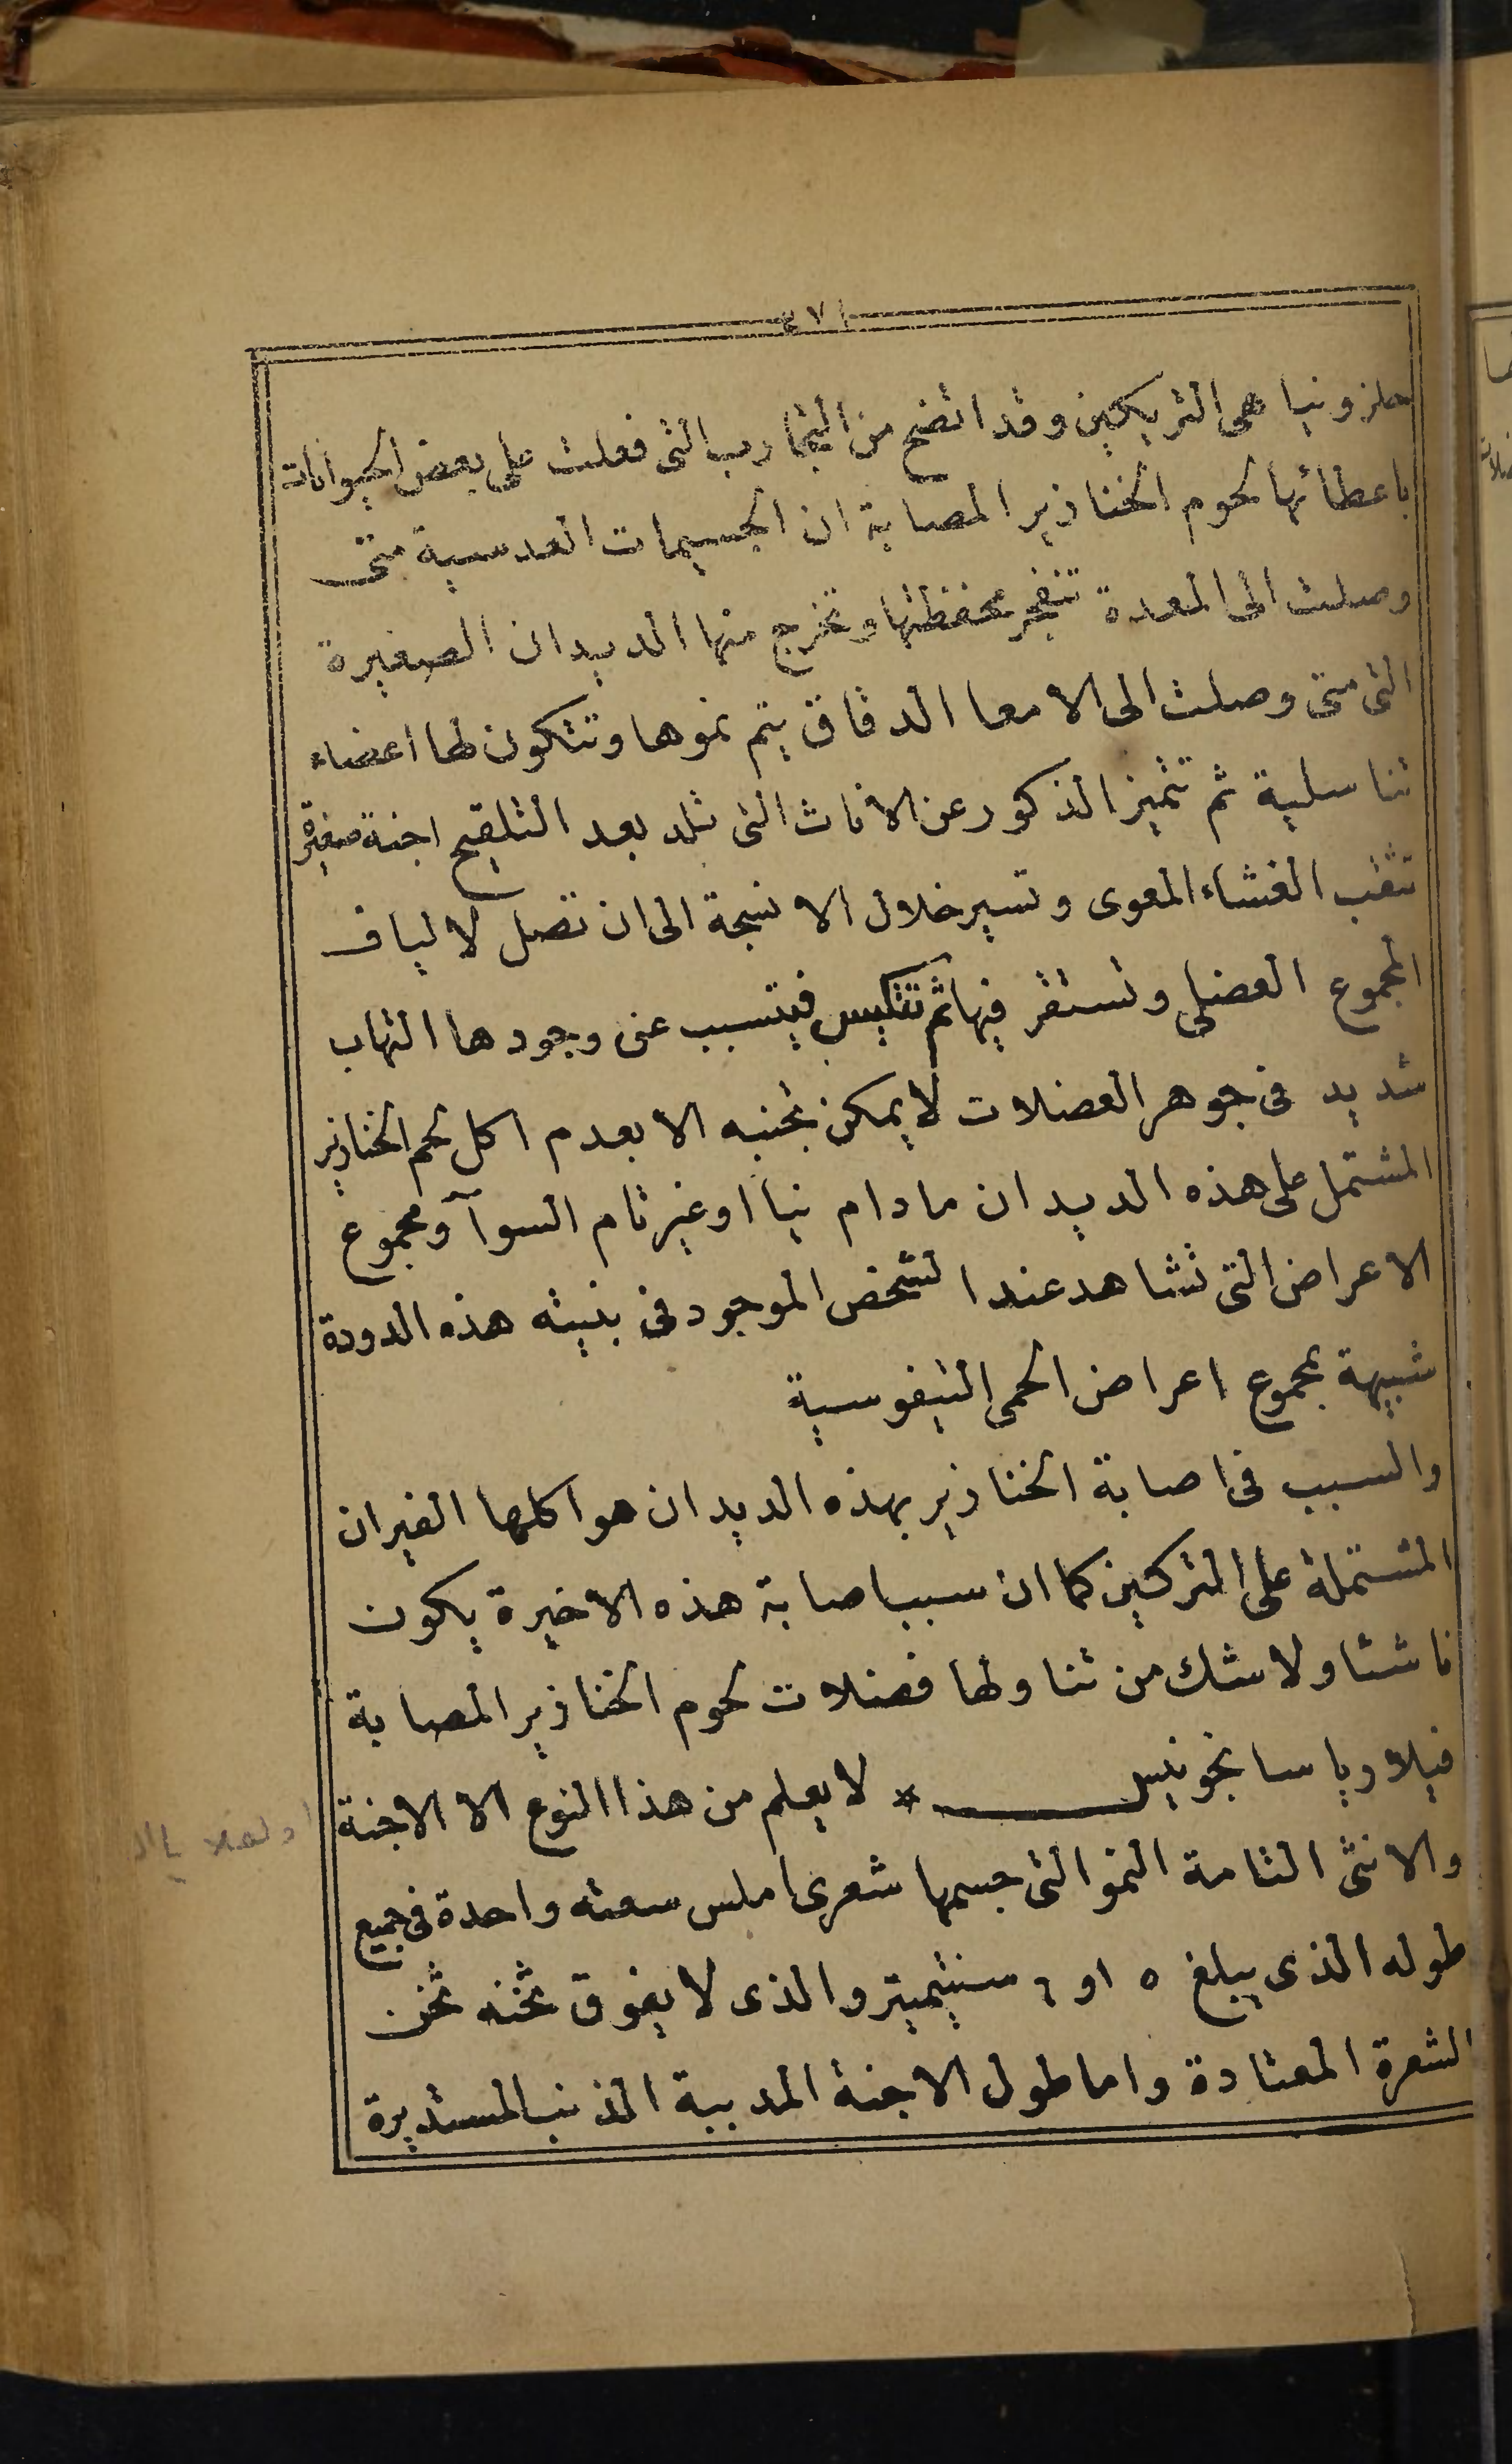 ٤٧١
حلزونيا هى التريكين وقد اتضح من التجارب التى فعلت على بعض الحيوانات
باعطائها لحوم الخنازير المصابة ان الجسيمات العدسية متى
وصلت الى المعدة تنفجر محفظتها وتخرج منها الديدان الصغيرة
التى متى وصلت الى الامعا الدقاق يتم نموها وتتكون لها اعضاء
تناسلية ثم تتميز الذكور عن الاناث التى تلد بعد التلقيح اجنة صغيرة
تثقب الغشاء المعوى وتسير خلال الانسجة الى ان تصل لالياف
المجموع العضلى وتستقر فيها ثم تتكيس فيتسبب عن وجودها التهاب
شديد فى جوهر العضلات لا يمكن تجنبه الا بعدم اكل لحم الخنازير
المشتمل على هذه الديدان مادام نيأ او غير تام السوآ ومجموع
الاعراض التى تشاهد عند الشخص الموجود فى بنيته هذه الدودة
شبيهة بمجموع اعراض الحمى التيفوسية
والسبب فى اصابة الخنازير بهذه الديدان هو اكلها الفيران
المشتملة على التركين كما ان سبب اصابة هذه الاخيرة يكون
ناشئا ولا شك من تناولها فضلات لحوم الخنازير المصابة
فيلاريا سانجونيس * لا يعلم من هذا النوع الا الاجنة
والانثى التامة النمو التى جسمها شعرى املس سعته واحدة فى جميع
طوله الذى يبلغ ٥ او ٦ سنتيميتر والذى لا يفوق ثخنه ثخن
الشعرة المعتادة واما طول الاجنة المدببة الذنب المستديرة